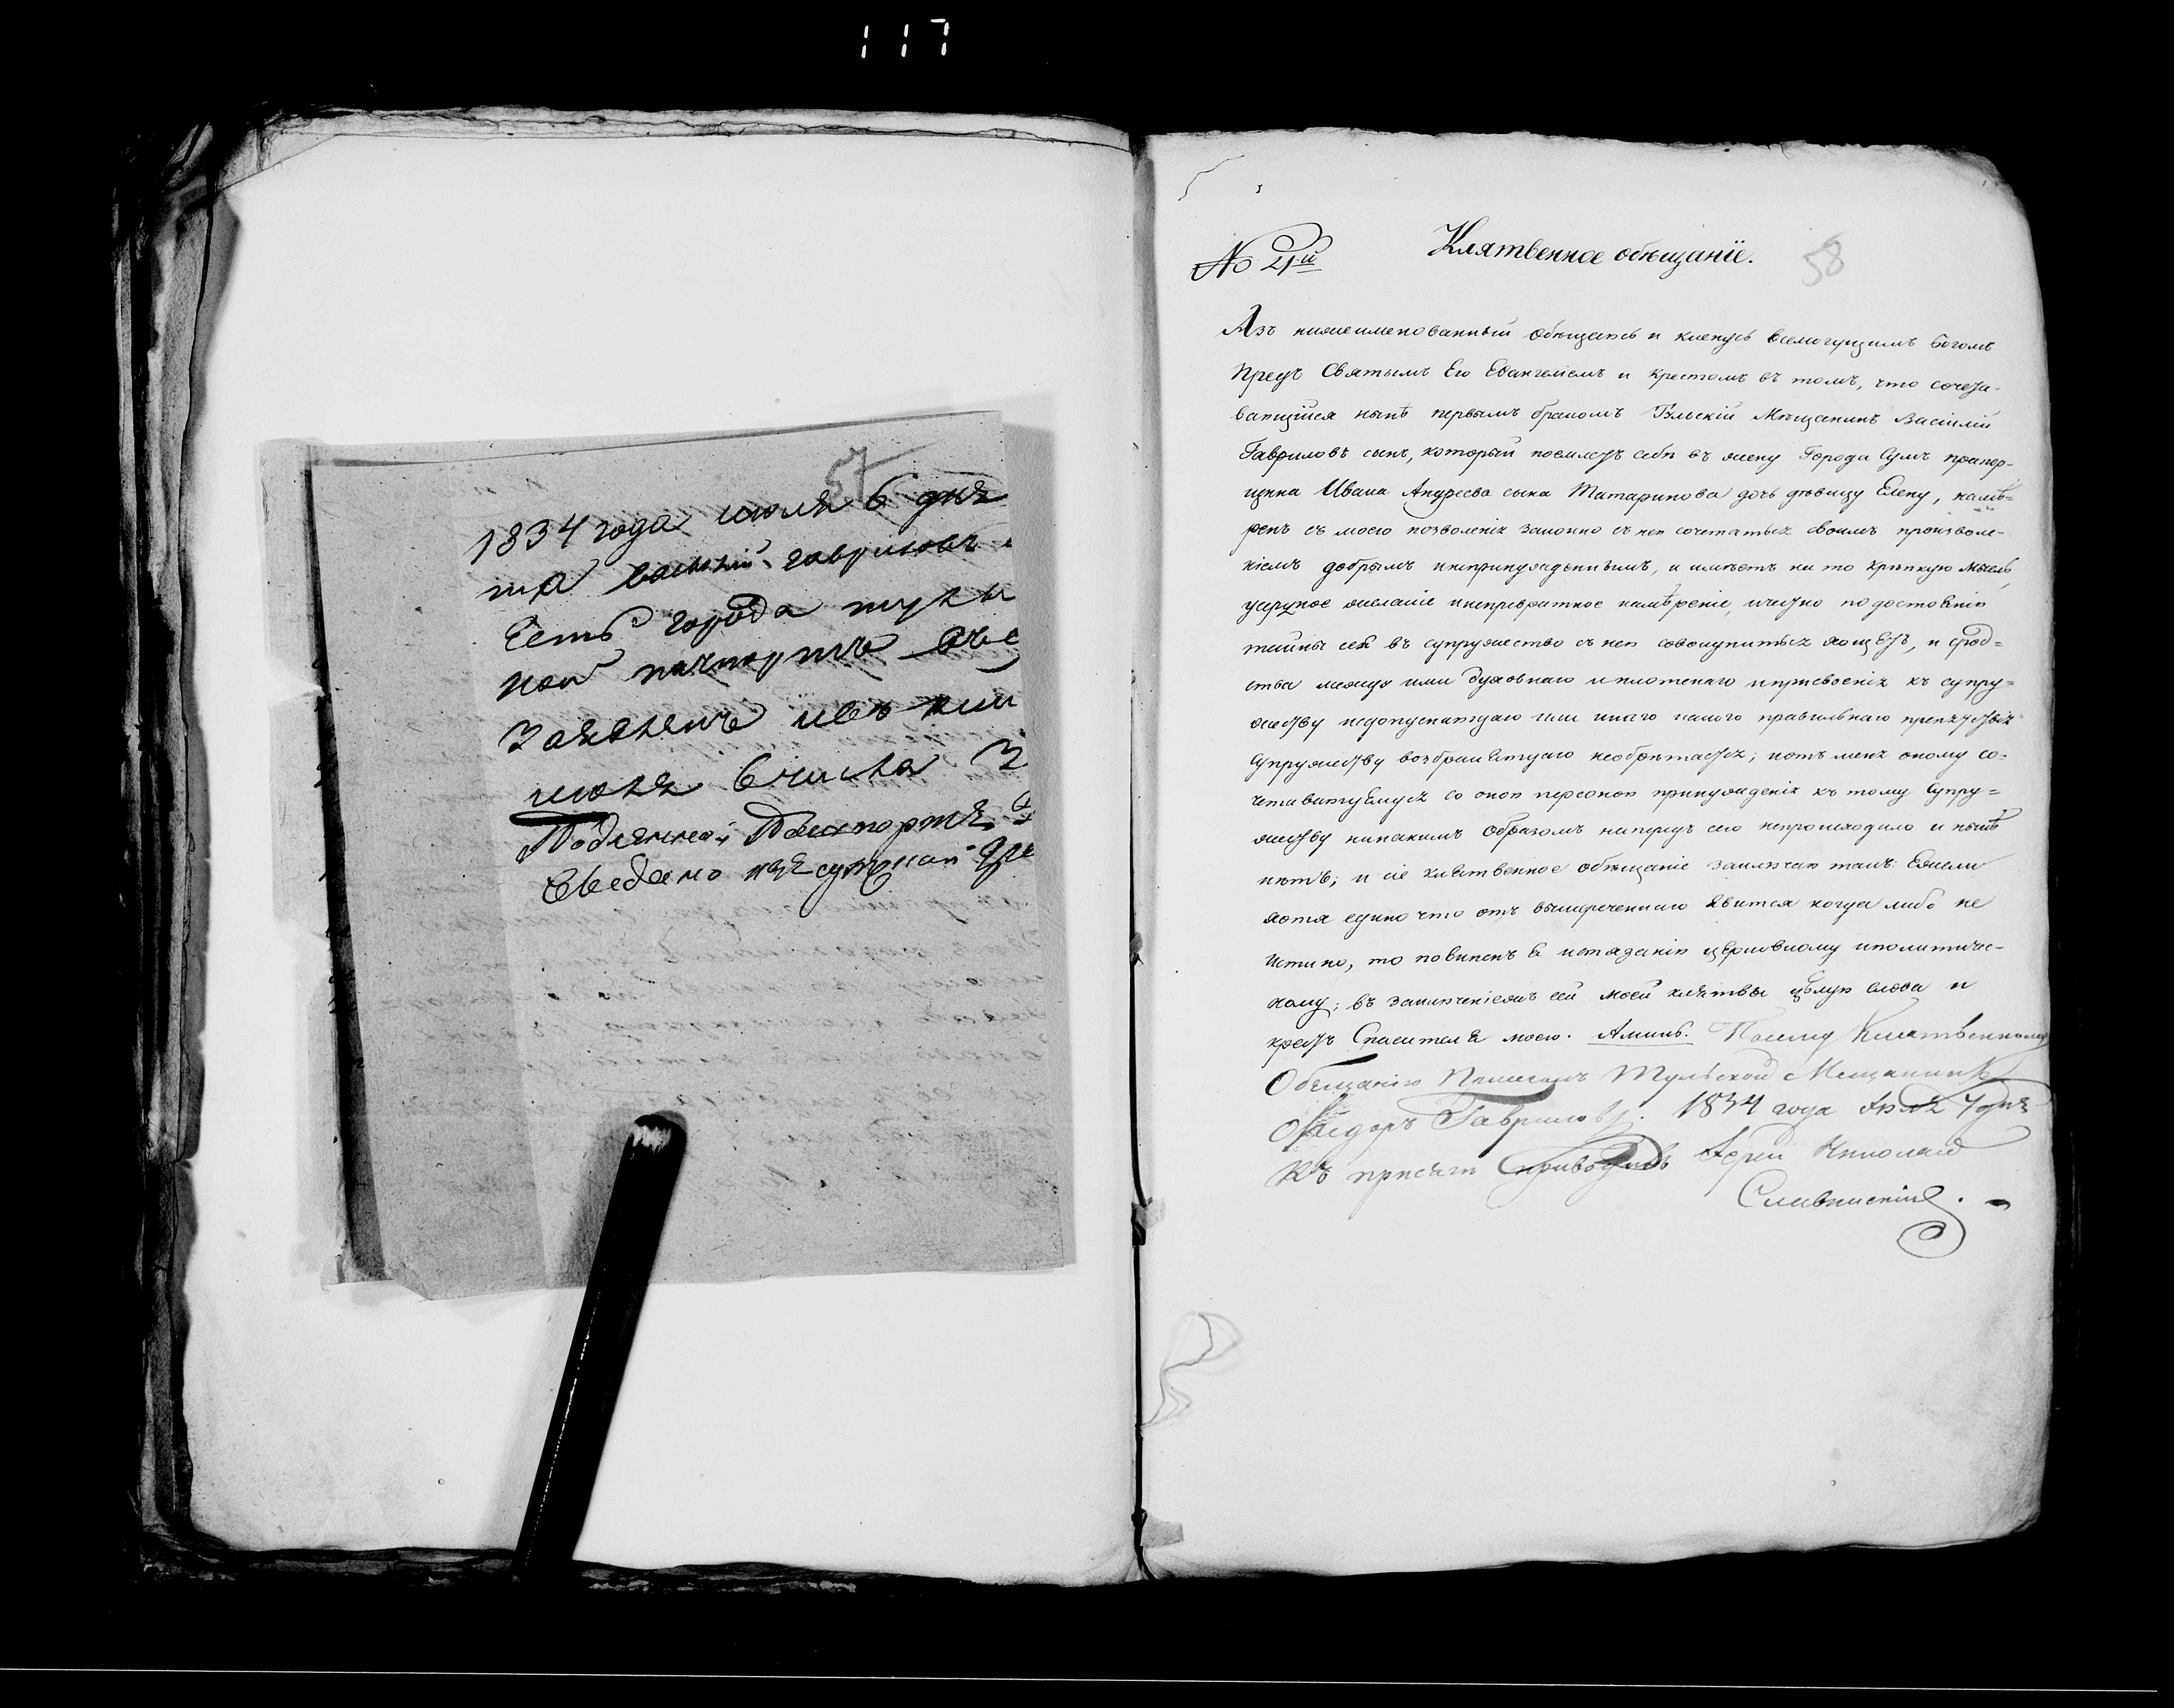 117
57
1834 года июля 6 дня
та василий гавриловъ
Естъ города тулы
ной пачпортъ
июля 6 числа
Подленной Пашпортъ
№ 4й
Клятвенное обѣщанïе.
58
Азъ нижеименованный обѣщаюсь и кленусь всемогущимъ богомъ
предъ Святымъ Его Евангелiемъ и крестомъ въ томъ, что сочета-
вающiйся нынѣ первымъ бракомъ Тульскiй Мѣщанинъ Василiй
Гавриловъ сынъ, который поемлетъ себѣ въ жену Города Сумъ прапор-
щика Ивана Андреева сына Татаринова дочь дѣвицу Елену, намѣ=
ренъ съ моего позволенiя законно съ нею сочетаться своимъ произволе-
нiемъ добрымъ инепринужденнымъ, и имѣетъ на то крѣпкую мысль,
усердное желанiе инепревратное намѣренiе, по достоянiю
тайны сея въ супружество съ нею совокупиться хощетъ, и срод=
ства между ими духовнаго иплотскаго иприсвоенiя къ супру=
жеству недопускающаго или инаго какого правильнаго препятствiя
супружеству возбраняющаго необрѣтается; иотъ меня оному со-
четавающемуся со оною персоною принужденiя къ тому супру=
жеству никакимъ образомъ напредъ сего непроисходило и нынѣ
нѣтъ; и сiе клятвенное обѣщанiе заключаю такъ: Ежели
хотя едино что отъ вышереченнаго явится когда либо не
истинно, то повиненъ я истязанiю церковному иполитиче-
кому; въ заключенiемъ сей моей клятвы цѣлую слова и
крестъ Спасителя моего. Аминь. Посему Клятвенному
Обещанiю Тульской Мещанинъ
Федоръ Гавриловъ. 1834 года Iюля 7 дня
Къ присяги приводилъ Iерей Николай